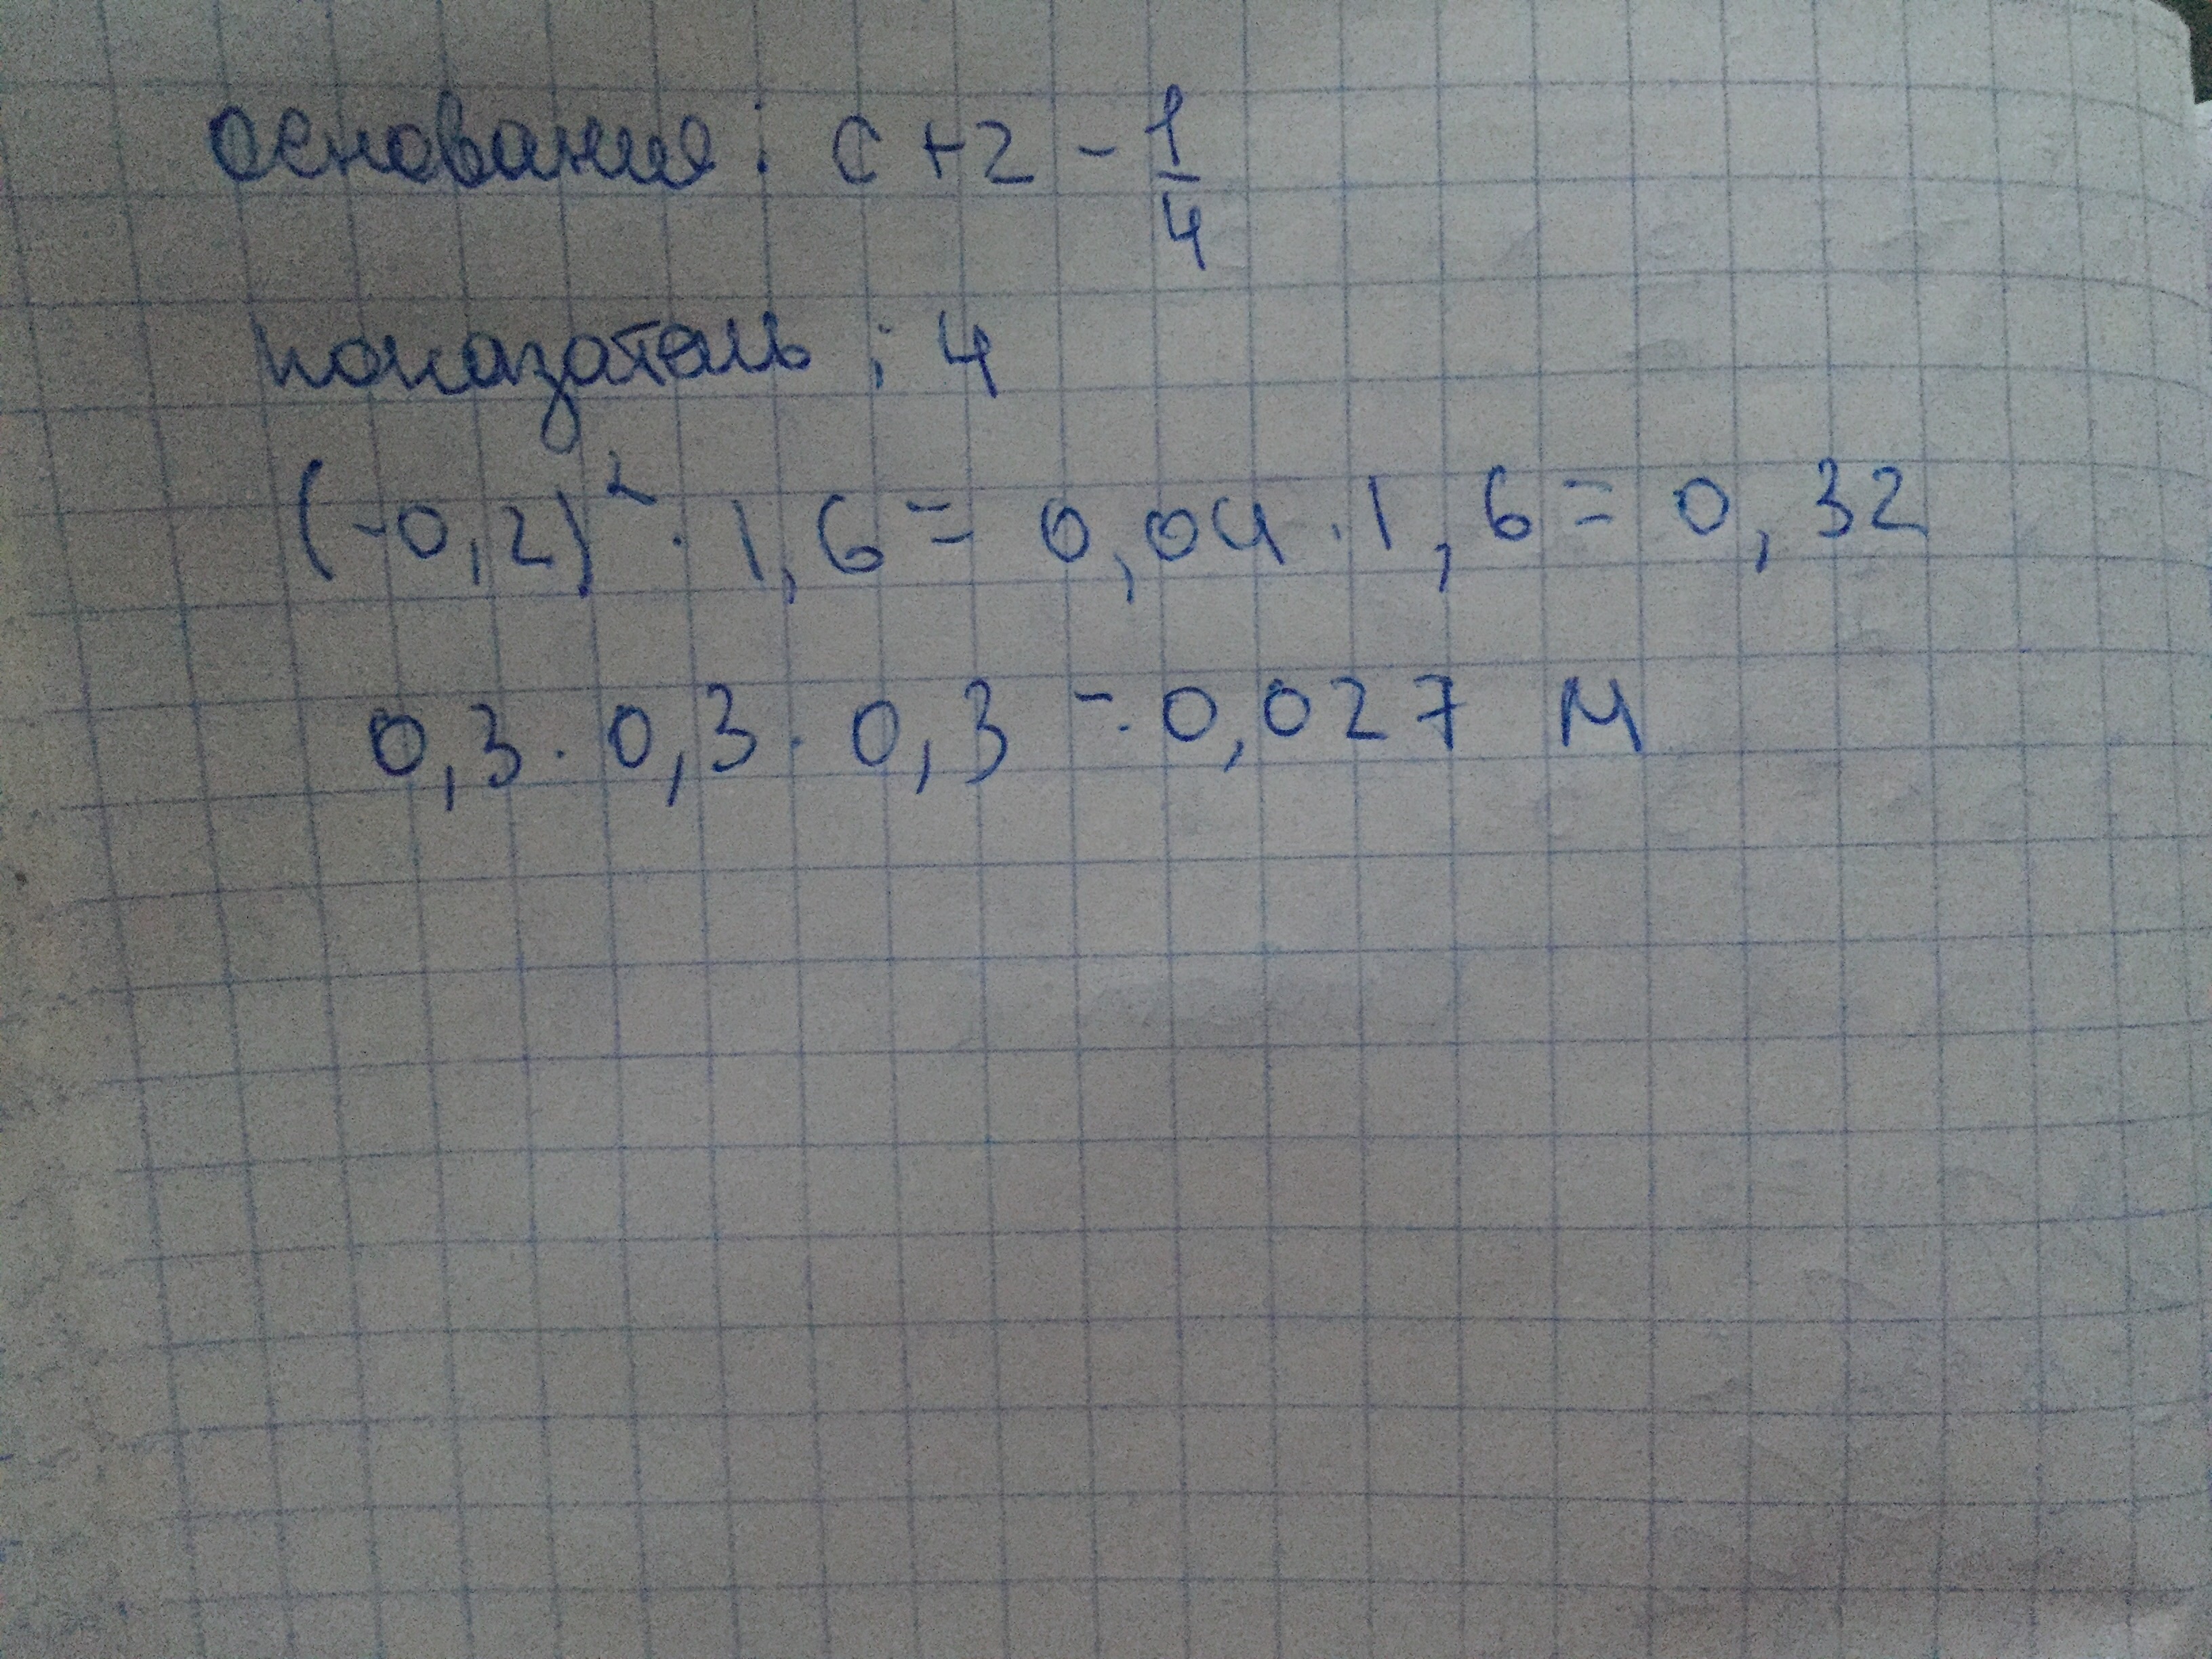 основание: c + 2 - 1/4
показатель: 4
(-0,2)² · 1,6 = 0,04 · 1,6 = 0,32
0,3 · 0,3 · 0,3 = 0,027 м